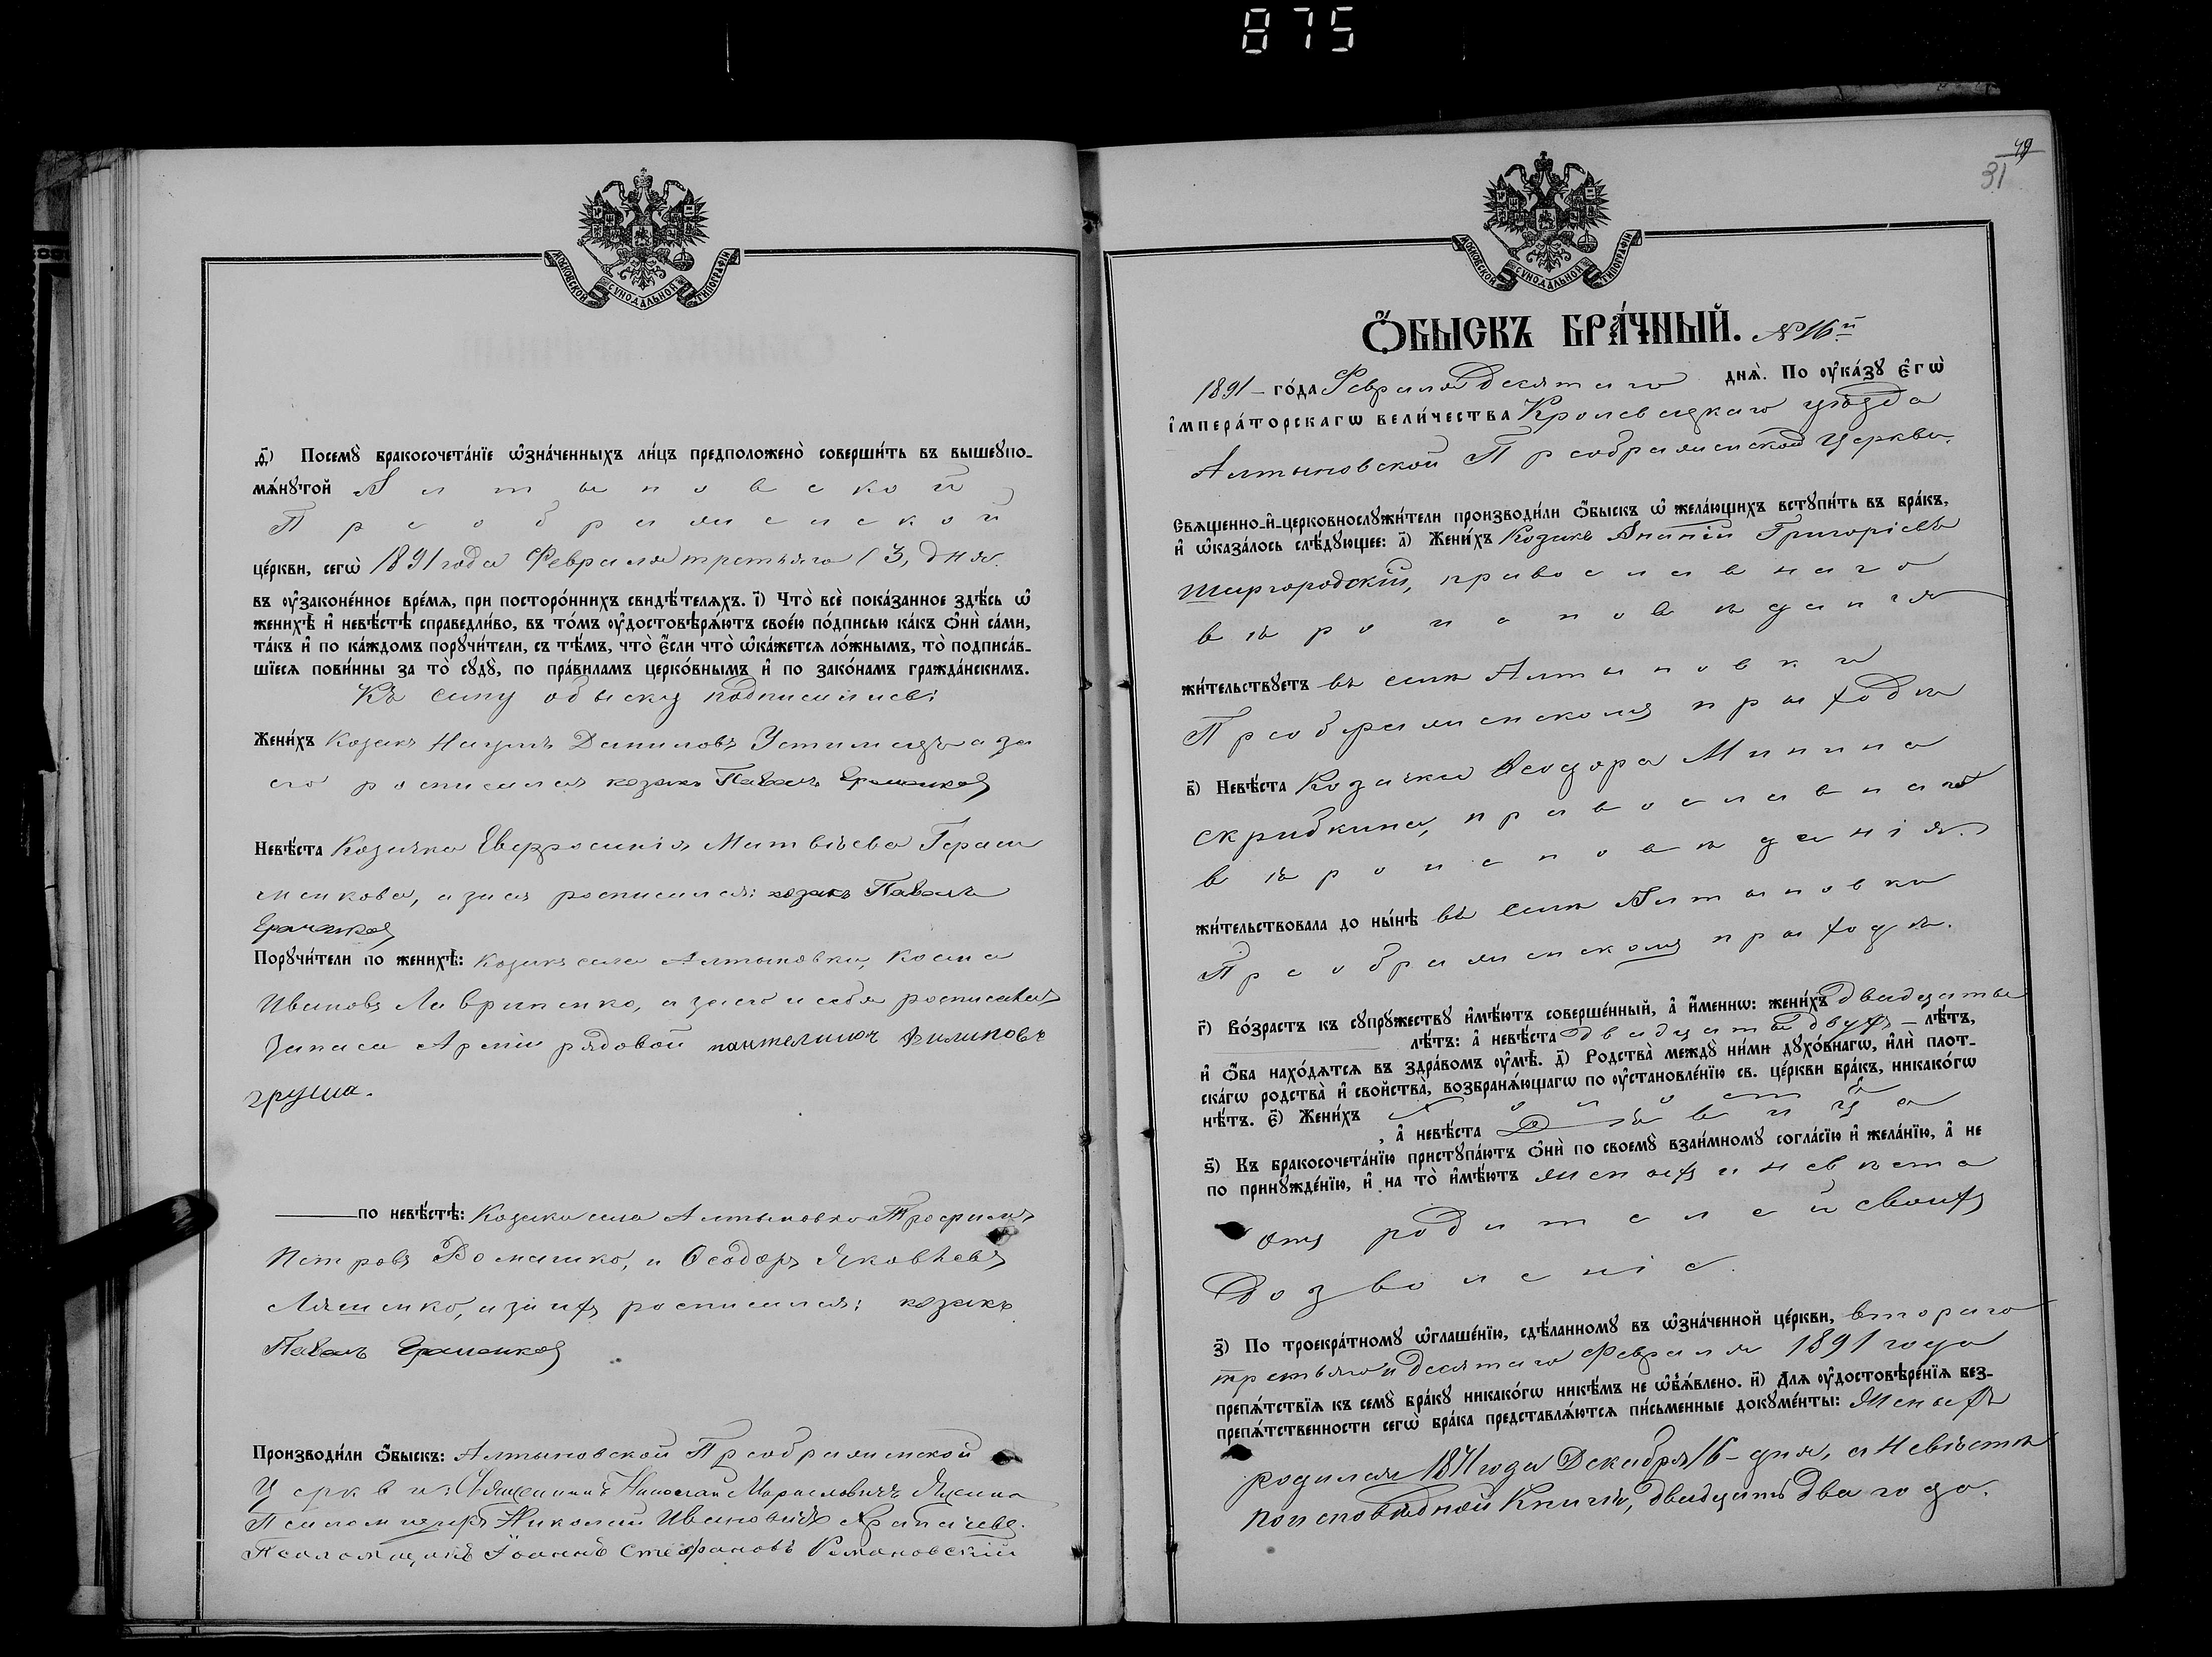 875
МОСКОВСКОЙ СУНОДАЛЬНОЙ ТИПОГРАФІИ
Посемꙋ̀ бракосочета́нїе ѡ҆зна́ченныхъ ли́цъ предположено̀ соверши́ть въ вышеупо-
мѧ́нꙋтой Алтыновской
Преображенской
це́ркви, сегѡ̀ 1891 года Февраля третьяго (3, дня.
въ ᲂу҆законе́нное вре́мѧ, при посторо́ннихъ свидѣ́телѧхъ. і҃) Что̀ всѐ пока́занное здѣ́сь ѡ҆
женихѣ̀ и҆ невѣ́стѣ справедли́во, въ то́мъ ᲂу҆достовѣрѧ́ютъ свое́ю по́дписью ка́къ ѻ҆нѝ са́ми,
та́къ и҆ по ка́ждомъ порꙋчи́тели, съ тѣ́мъ, что̀ є҆́сли что̀ ѡ҆ка́жетсѧ ло́жнымъ, то̀ подписа́в-
шїесѧ пови́нны за то̀ сꙋдꙋ̀, по пра́виламъ церко́внымъ и҆ по зако́намъ гражда́нскимъ.
Къ сему обыску подписались:
Жени́хъ Козакъ Наумъ Даниловъ Устимецъ а за
его росписался козакъ Павелъ
Невѣ́ста Козачка Евфросинія Матвѣева Гераси
менкова, а за ея росписался: козакъ Павелъ
Порꙋчи́тели по женихѣ̀: Козакъ села Алтыновки, Косма
Ивановъ Лавриненко, а за его и себя росписался
Запаса Арміи рядовой пантелимон Филиповъ
груша.
по невѣ́стѣ: Козаки села Алтыновки Трофимъ
Петровъ Вомашко, и Ѳеодоръ Яковлевъ
Ляшенко, а за ихъ росписался: козакъ
Павелъ
Производи́ли ѻ҆́быскъ: Алтыновской Преображенской
Церкви: Священникъ Николай
Псаломщикъ Николай Ивановичъ
Псаломщикъ Іоаннъ Стефановъ Романовскій
49
31
МОСКОВСКОЙ СУНОДАЛЬНОЙ ТИПОГРАФІИ
Ѻ҆́быскъ бра́чный. №16й
1891 – го́да Февраля Десятаго днѧ̀. По ᲂу҆ка́зꙋ Є҆гѡ̀
і҆мпера́торскагѡ вели́чества Кролевецкаго уѣзда
Алтыновской Преображенской Церкви.
Свѧще́нно-и҆-церковнослꙋжи́тели производи́ли ѻ҆́быскъ ѡ҆ жела́ющихъ встꙋпи́ть въ бра́къ,
и҆ ѡ҆каза́лось слѣ́дꙋющее: а҃) Жени́хъ Козакъ Ананій Григоріевъ
Шаргородскій, православнаго
вѣроисповѣданія
жи́тельствꙋетъ въ селѣ Алтыновки
Преображенскомъ приходѣ
в҃) Невѣ́ста Козачка Ѳеодора Минина
скрибкина, православнаго
вѣроисповѣданія
жи́тельствовала до ны́нѣ въ селѣ Алтыновки
Преображенскомъ приходѣ.
г҃) Во́зрастъ къ сꙋпрꙋ́жествꙋ и҆мѣ́ютъ соверше́нный, а҆ и҆́меннѡ: жени́хъ двадцати
лѣ́тъ: а҆ невѣ́ста двадцати двухъ – лѣ́тъ,
и҆ ѻ҆́ба нахо́дѧтсѧ въ здра́вомъ ᲂу҆мѣ̀. д҃) Родства̀ междꙋ̀ ни́ми дꙋхо́внагѡ, и҆лѝ плот-
ска́гѡ родства̀ и҆ свойства̀, возбранѧ́ющагѡ по ᲂу҆становле́нїю св. це́ркви бра́къ, никако́гѡ
нѣ́тъ. є҃) Жени́хъ Холостъ
, а҆ невѣ́ста Дѣвица
ѕ҃) Къ бракосочета́нїю пристꙋпа́ютъ ѻ҆нѝ по своемꙋ̀ взаи́мномꙋ согла́сїю и҆ жела́нїю, а҆ не
по принꙋжде́нїю, и҆ на то̀ и҆мѣ́ютъ женихъ и невѣста
отъ родителей своихъ
Дозволеніе.
з҃) По троекра́тномꙋ ѡ҆глаше́нїю, сдѣ́ланномꙋ въ ѡ҆зна́ченной це́ркви, втораго
третьяго и десятаго Февраля 1891 года
препѧ́тствїѧ къ семꙋ̀ бра́кꙋ никако́гѡ никѣ́мъ не ѡ҆б̾ѧ́влено. и҃) Длѧ ᲂу҆достовѣре́нїѧ без-
препѧ́тственности сегѡ̀ бра́ка представлѧ́ютсѧ пи́сьменные докꙋме́нты: Женихъ
родился 1871 года Декабря 16 – дня, а Невѣста
по исповѣдной Книги, двадцать два года.